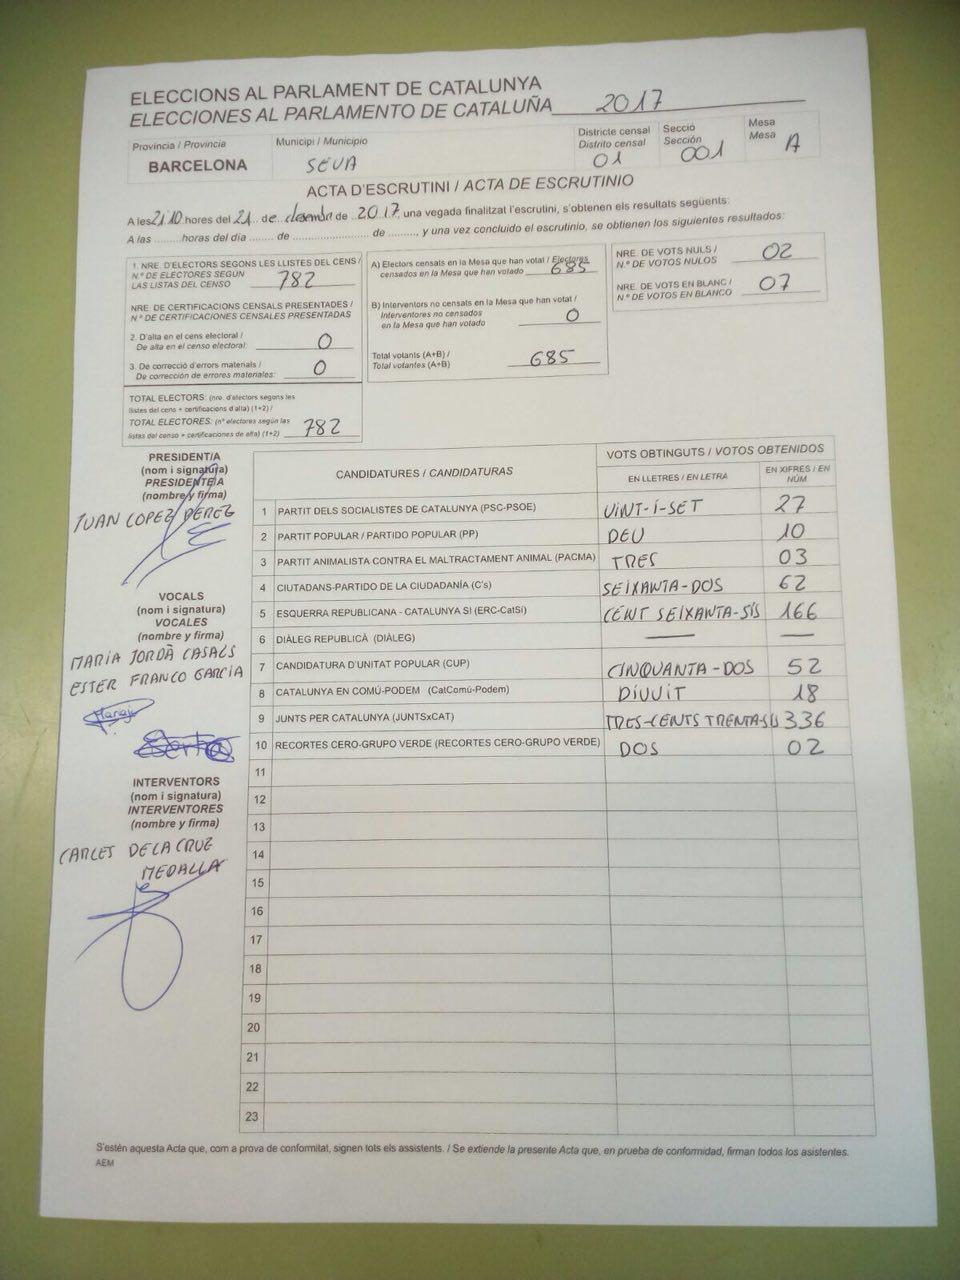 ELECCIONS AL PARLAMENT DE CATALUNYA
ELECCIONES AL PARLAMENTO DE CATALUÑA 2017
Provincia / Provincia
BARCELONA
Municipi / Municipio
SEVA
Districte censal
Distrito censal
01
Secció
Sección
001
Mesa
Mesa
A
ACTA D'ESCRUTINI / ACTA DE ESCRUTINIO
A les 21.10 hores del 21 de desembre de 2017, una vegada finalitzat l'escrutini, s'obtenen els resultats següents:
A las ......... horas del día ........ de ........................ de ........., y una vez concluido el escrutinio, se obtienen los siguientes resultados:
1. NRE. D'ELECTORS SEGONS LES LLISTES DEL CENS /
N.º DE ELECTORES SEGÚN
LAS LISTAS DEL CENSO 782
NRE. DE CERTIFICACIONS CENSALS PRESENTADES /
N.º DE CERTIFICACIONES CENSALES PRESENTADAS
2. D'alta en el cens electoral /
De alta en el censo electoral: 0
3. De correcció d'errors materials /
De corrección de errores materiales: 0
TOTAL ELECTORS: (nre. d'electors segons les
llistes del cens + certificacions d'alta) (1+2) /
TOTAL ELECTORES: (nº electores según las
listas del censo + certificaciones de alta) (1+2) 782
A) Electors censats en la Mesa que han votat / Electores
censados en la Mesa que han votado 685
B) Interventors no censats en la Mesa que han votat /
Interventores no censados
en la Mesa que han votado 0
Total votants (A+B) /
Total votantes (A+B) 685
NRE. DE VOTS NULS /
N.º DE VOTOS NULOS 02
NRE. DE VOTS EN BLANC /
N.º DE VOTOS EN BLANCO 07
PRESIDENT/A
(nom i signatura)
PRESIDENTE/A
(nombre y firma)
JUAN LOPEZ PEREZ
VOCALS
(nom i signatura)
VOCALES
(nombre y firma)
MARIA JORDÀ CASALS
ESTER FRANCO GARCIA
INTERVENTORS
(nom i signatura)
INTERVENTORES
(nombre y firma)
CARLES DE LA CRUZ
MEDALLA
CANDIDATURES / CANDIDATURAS
VOTS OBTINGUTS / VOTOS OBTENIDOS
EN LLETRES / EN LETRA
EN XIFRES / EN
NÚM
1 PARTIT DELS SOCIALISTES DE CATALUNYA (PSC-PSOE) VINT-I-SET 27
2 PARTIT POPULAR / PARTIDO POPULAR (PP) DEU 10
3 PARTIT ANIMALISTA CONTRA EL MALTRACTAMENT ANIMAL (PACMA) TRES 03
4 CIUTADANS-PARTIDO DE LA CIUDADANÍA (C's) SEIXANTA-DOS 62
5 ESQUERRA REPUBLICANA - CATALUNYA SI (ERC-CatSí) CENT SEIXANTA-SIS 166
6 DIÀLEG REPUBLICÀ (DIÀLEG) — —
7 CANDIDATURA D'UNITAT POPULAR (CUP) CINQUANTA-DOS 52
8 CATALUNYA EN COMÚ-PODEM (CatComú-Podem) DIVUIT 18
9 JUNTS PER CATALUNYA (JUNTSxCAT) TRES-CENTS TRENTA-SIS 336
10 RECORTES CERO-GRUPO VERDE (RECORTES CERO-GRUPO VERDE) DOS 02
11
12
13
14
15
16
17
18
19
20
21
22
23
S'estén aquesta Acta que, com a prova de conformitat, signen tots els assistents. / Se extiende la presente Acta que, en prueba de conformidad, firman todos los asistentes.
AEM